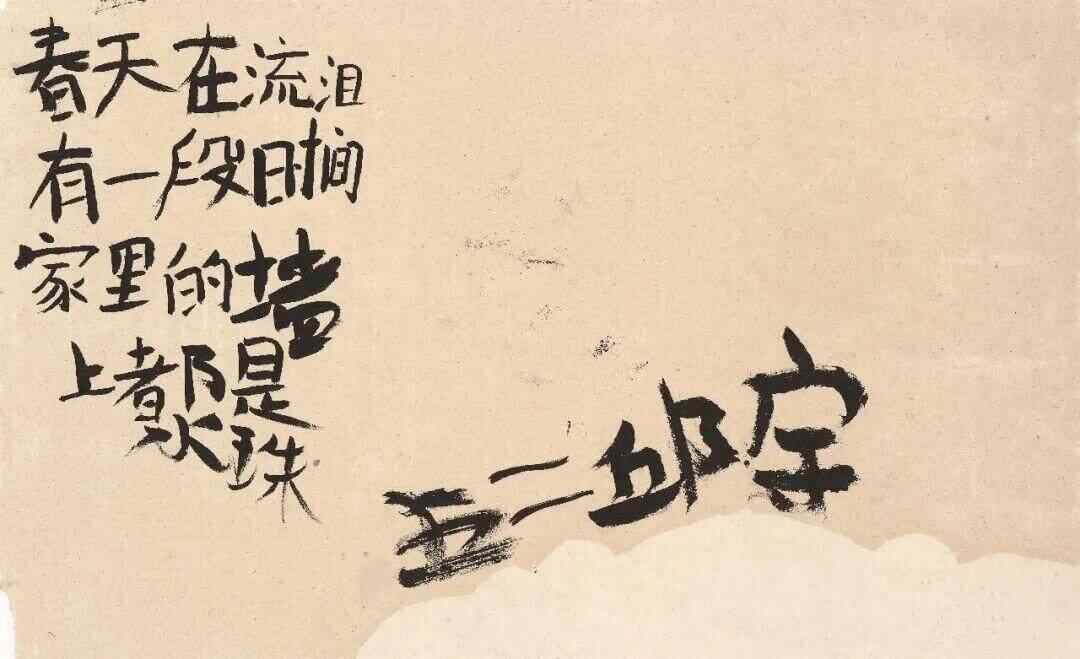 春天在流泪
有一段日时间
家里的墙
上都是
水珠
五二邱宇